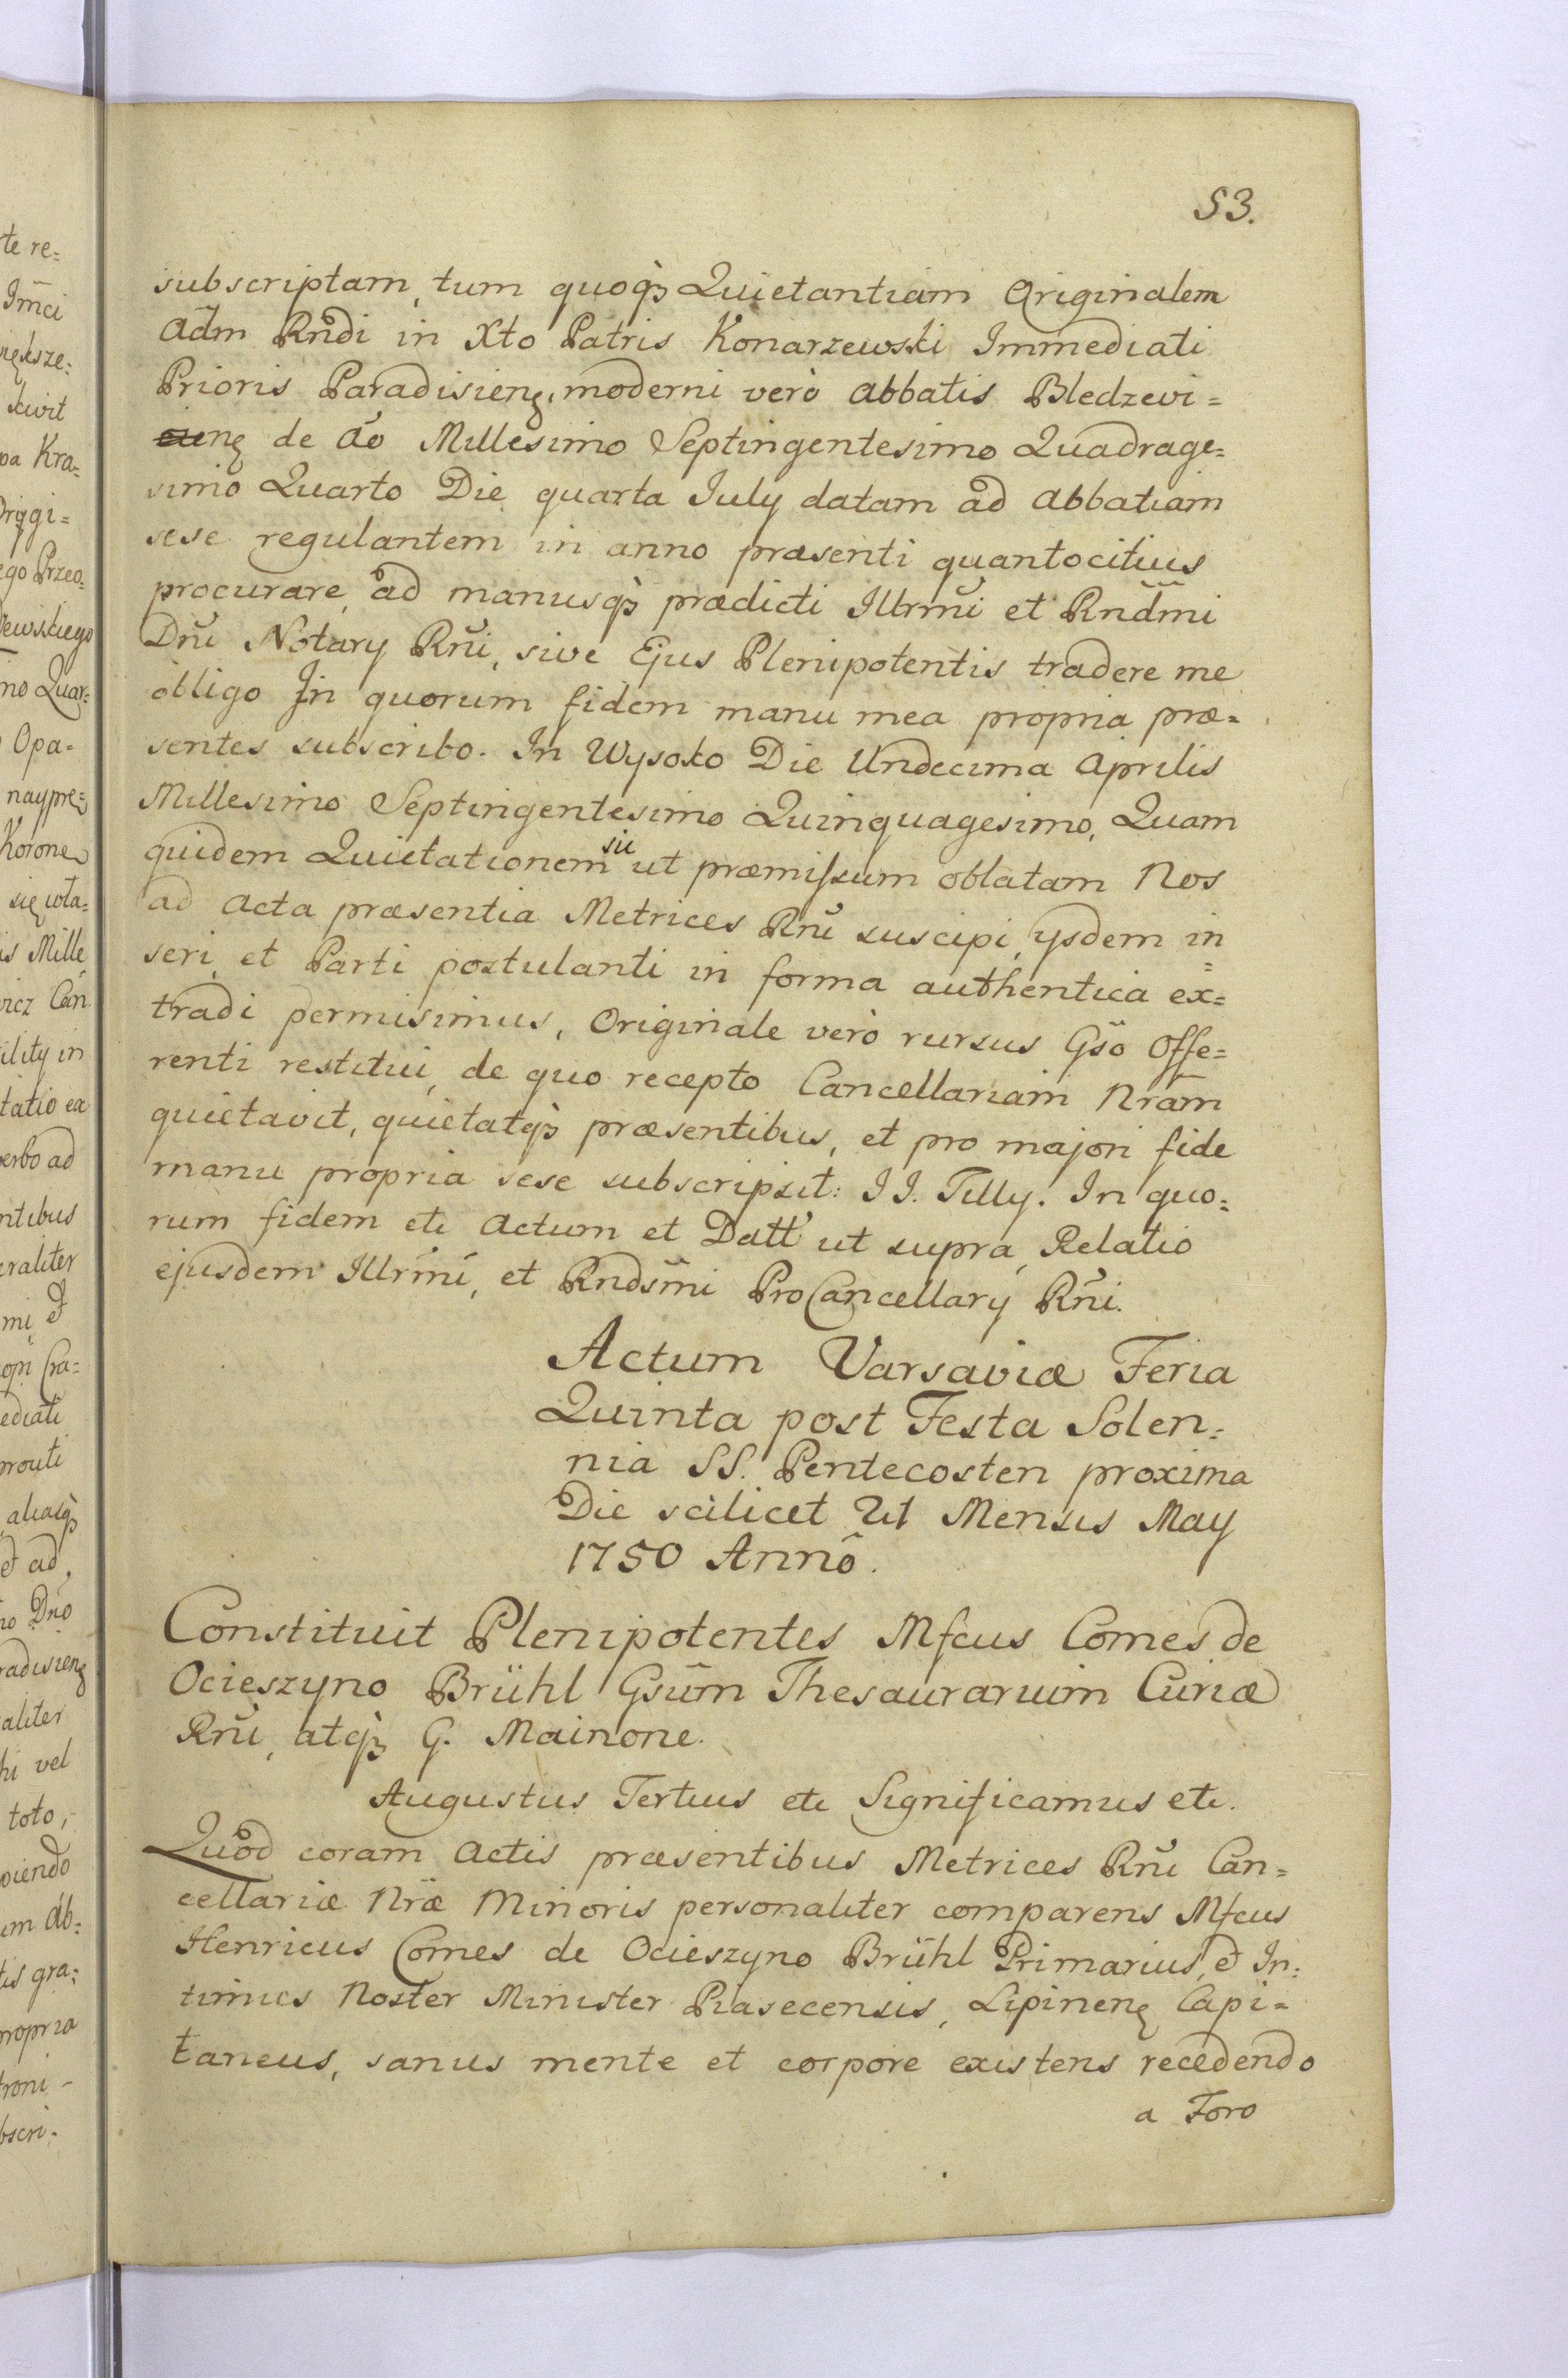 53.
subscriptam, tum quoqȝ Quietantiam Originalem
Adm̃ Rndi in Xto Patris Konarzewski Immediati
Prioris Paradisienȝ, moderni verò Abbatis Bledzevi=
cienȝ de Ao Millesimo Septingentesimo Quadrage=
simo Quarto Die quarta July datam ad Abbatiam
sese regulantem in anno præsenti quantocitius
procurare, ad manusqȝ prædicti Illrm̃i et Rndm̃i
Dni Notary Rni, sive Ejus Plenipotentis tradere me
obligo In quorum fidem manu mea propria præ=
sentes subscribo. In Wysoko Die Undecima Aprilis
Millesimo Septingentesimo Quinquagesimo, Quam
quidem Quietationem sic ut præmissum oblatam Nos
ad Acta præsentia Metrices Rni suscipi, ysdem in=
seri, et Parti postulanti in forma authentica ex=
tradi permisimus, Originale verò rursus Gso Offe=
renti restitui, de quo recepto Cancellariam Nram
quietavit, quietatqȝ præsentibus, et pro majori fide
manu propria sese subscripsit: I I. Tilly. In quo=
rum fidem etc Actum et Datt ut supra, Relatio
ejusdem Illrmi, et Rndsmi ProCancellary Rni.
Actum Varsaviæ Feria
Quinta post Festa Solen=
nia SS. Pentecosten proxima
Die scilicet 21 Mensis May
1750 Annô.
Constituit Plenipotentes Mfcus Comes de
Ocieszyno Brühl Gsum Thesaurarium Curiæ
Rni, atqȝ G. Mainone.
Augustus Tertius etc Significamus etc.
Quod coram Actis præsentibus Metrices Rni Can=
cellariæ Nræ Minoris personaliter comparens Mfcus
Henricus Comes de Ocieszyno Brühl Primarius, et In=
timus Noster Minister Piasecensis, Lipinenȝ Capi=
taneus, sanus mente et corpore existens recedendo
a Foro